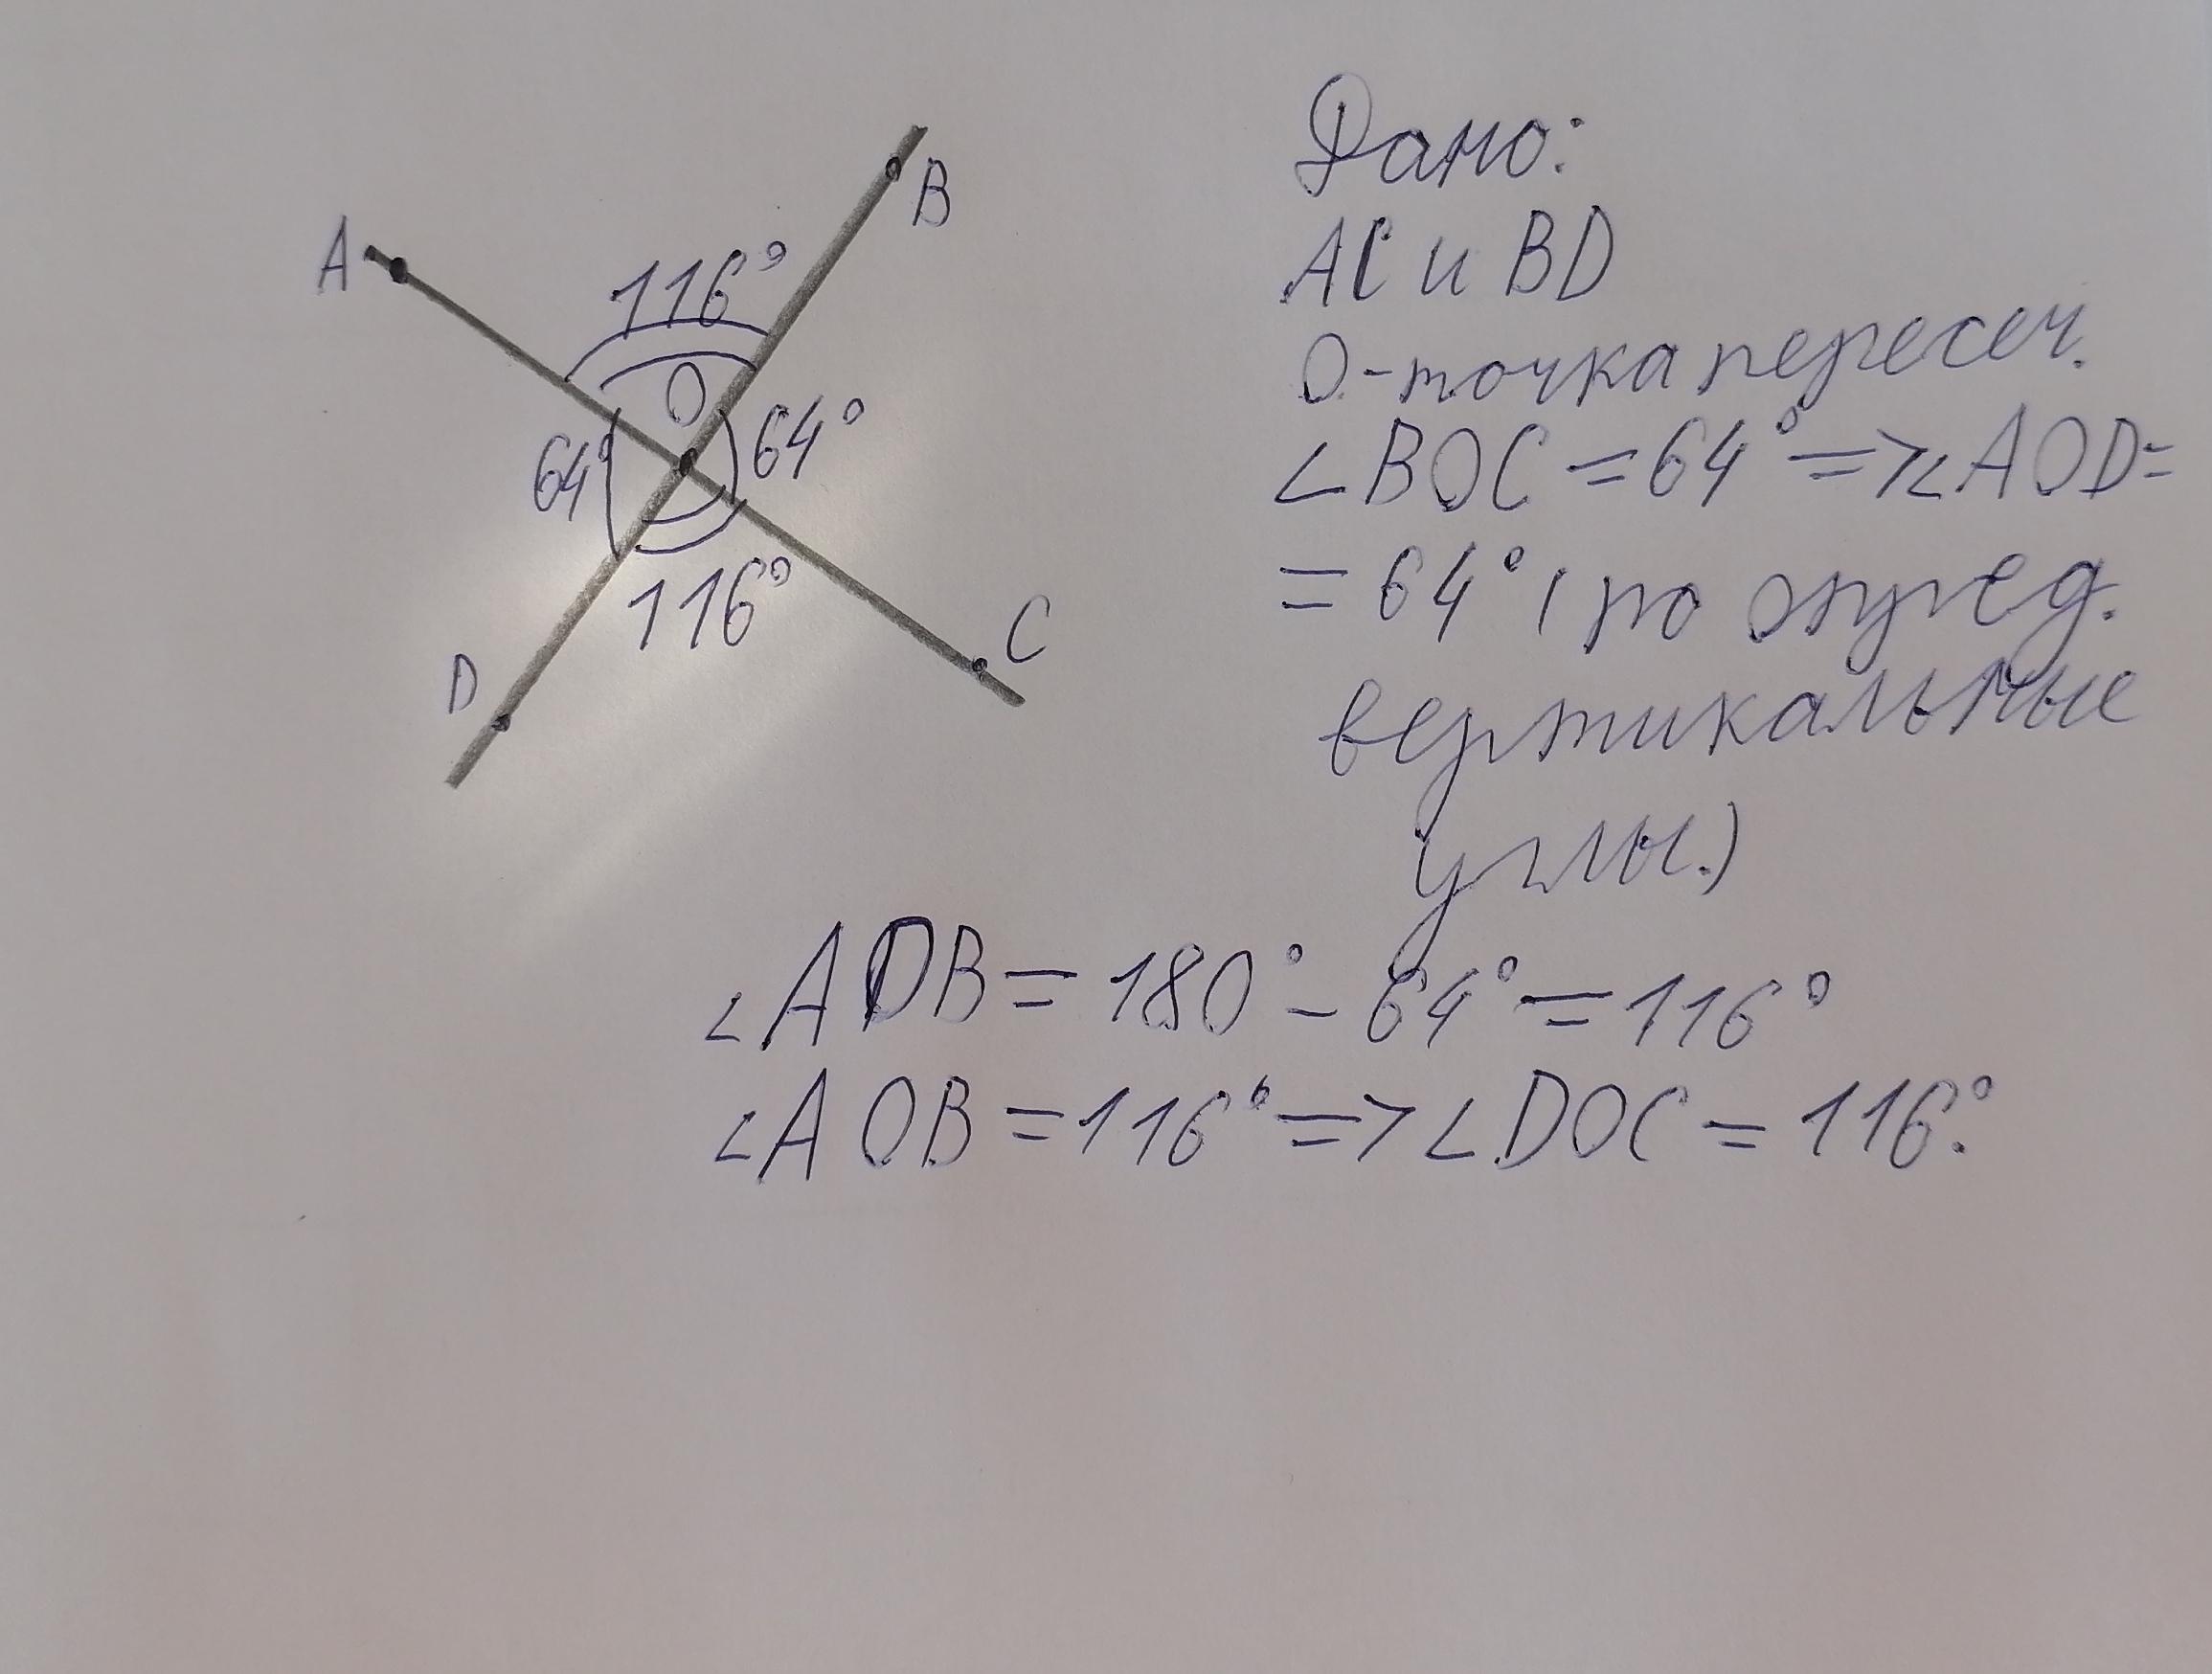 A
B
116°
O
64°
64°
116°
D
C
Дано:
AC и BD
O-точка пересеч.
∠BOC = 64° => ∠AOD=
= 64° (по опред.
вертикальные
углы.)
∠AOB = 180° - 64° = 116°
∠AOB = 116° => ∠DOC = 116°.